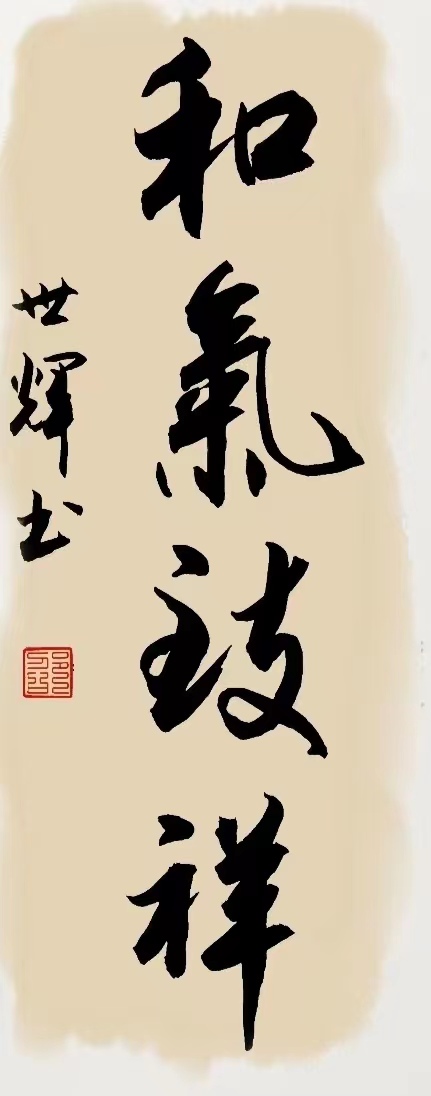 和氣致祥
世輝书